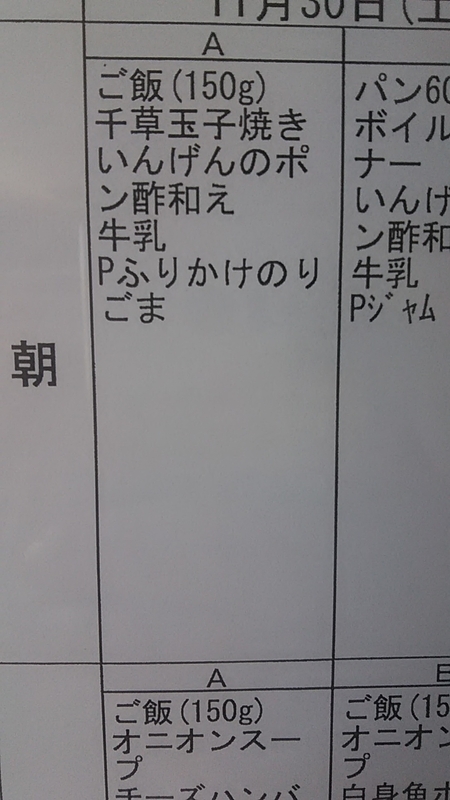 11月30日(土
A
ご飯(150g)
千草玉子焼き
いんげんのポ
ン酢和え
牛乳
Pふりかけのり
ごま
パン60
ボイル
ナー
いんげ
ン酢和
牛乳
Pｼﾞｬﾑ
朝
A
ご飯(150g)
オニオンスー
プ
チーズハンバ
B
ご飯(15
オニオン
プ
白身魚ボ